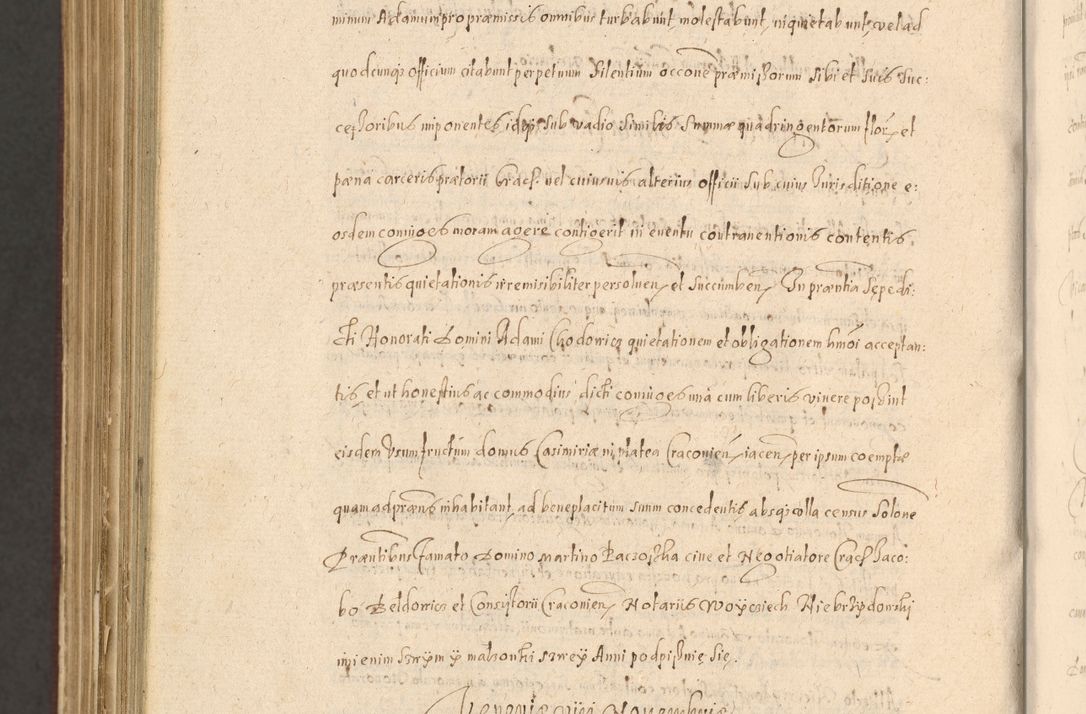 minum Adamum pro præmissis omnibus turbabunt, molestabunt, inquietabunt, vel ad
quodcunq3 officium citabunt perpetuum silentium occ͠one præmissorum sibi et suis suc:
cessoribus imponentes, idq3 sub vadio simili summæ quadringentorum flor: et
pæna carceris prætorii Crac͠. vel cuiusvis alterius officii sub cuius Jurisditione e:
osdem coniuges moram agere contigerit in eventu contraventionis contentis
præsentis quietationis irremisibiliter persolven͠ et succumben͠ In præn͠tia sepedi:
cti Honorati Domini Adami Chodowicz quietationem et obligationem hmo͠i acceptan:
tis, et ut honestius ac commodius dicti coniuges una cum liberis vivere possint
eisdem Usumfructum domus Casimiriæ in platea Cracovien͠ iacen͠ per ipsum coemptæ
quam ad præn͠s inhabitant, ad beneplacitum suum concedentis, absq3 colla census solone
Præn͠tibus Famato Domino Martino Paczoska cive et Negotiatore Crac͠ Jaco:
bo Beldowicz et Consistorii Cracovien͠ Notariis Woyciech Niebrzydowski
imieniem swym y małżonki swey Anni podpisuię się.